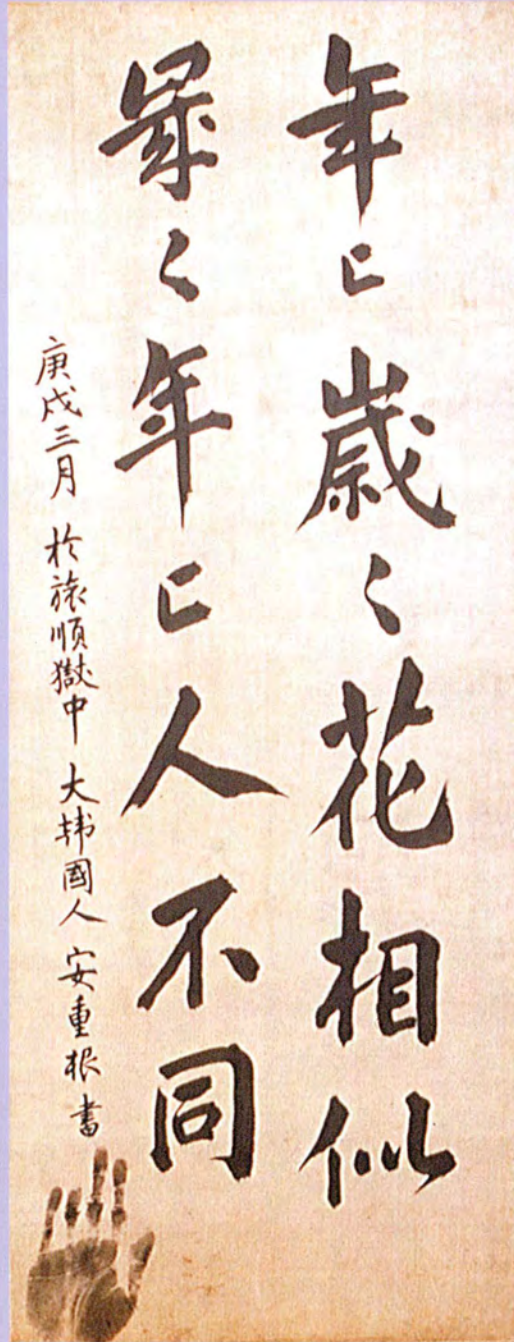 年々歳々花相似
歳々年々人不同
庚戌三月 於旅順獄中 大韓國人 安重根 書